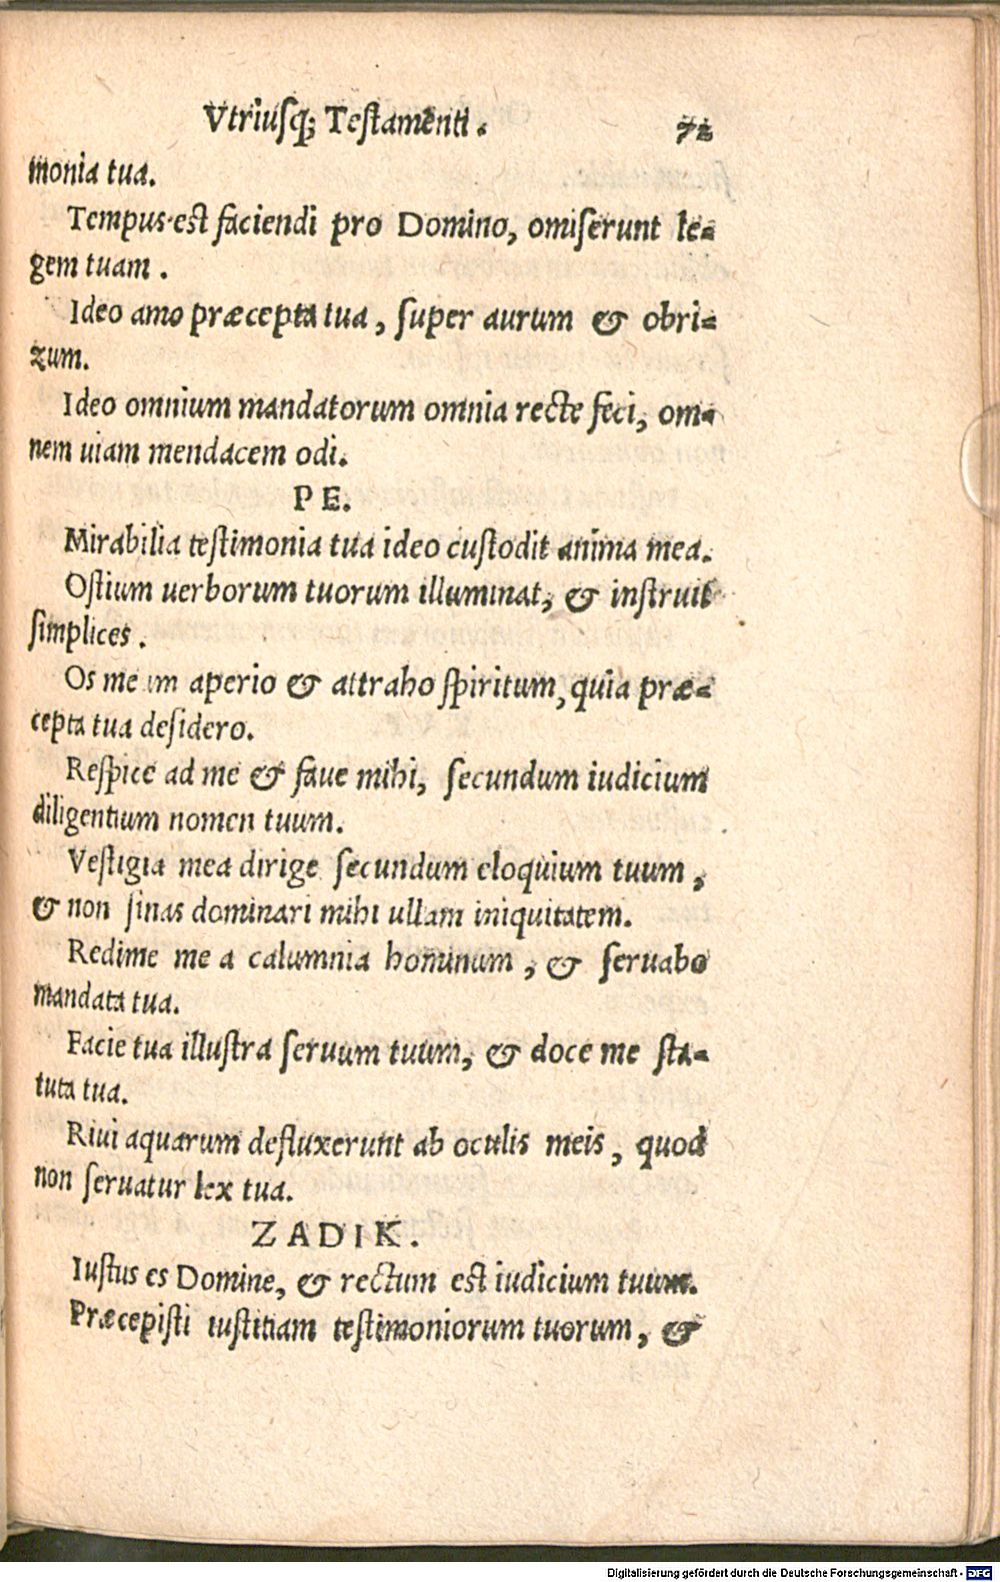 Vtriusq; Testamenti. 72
monia tua.
Tempus est faciendi pro Domino, omiserunt le=
gem tuam.
Ideo amo præcepta tua, super aurum & obri=
zum.
Ideo omnium mandatorum omnia recte feci, om=
nem uiam mendacem odi.
PE.
Mirabilia testimonia tua ideo custodit anima mea.
Ostium uerborum tuorum illuminat, & instruit
simplices.
Os meum aperio & attraho spiritum, quia præ=
cepta tua desidero.
Respice ad me & faue mihi, secundum iudicium
diligentium nomen tuum.
Vestigia mea dirige secundum eloquium tuum,
& non sinas dominari mihi ullam iniquitatem.
Redime me a calumnia hominum, & seruabo
mandata tua.
Facie tua illustra seruum tuum, & doce me sta=
tuta tua.
Riui aquarum defluxerunt ab oculis meis, quod
non seruatur lex tua.
ZADIK.
Iustus es Domine, & rectum est iudicium tuum.
Præcepisti iustitiam testimoniorum tuorum, &
Digitalisierung gefördert durch die Deutsche Forschungsgemeinschaft - DFG